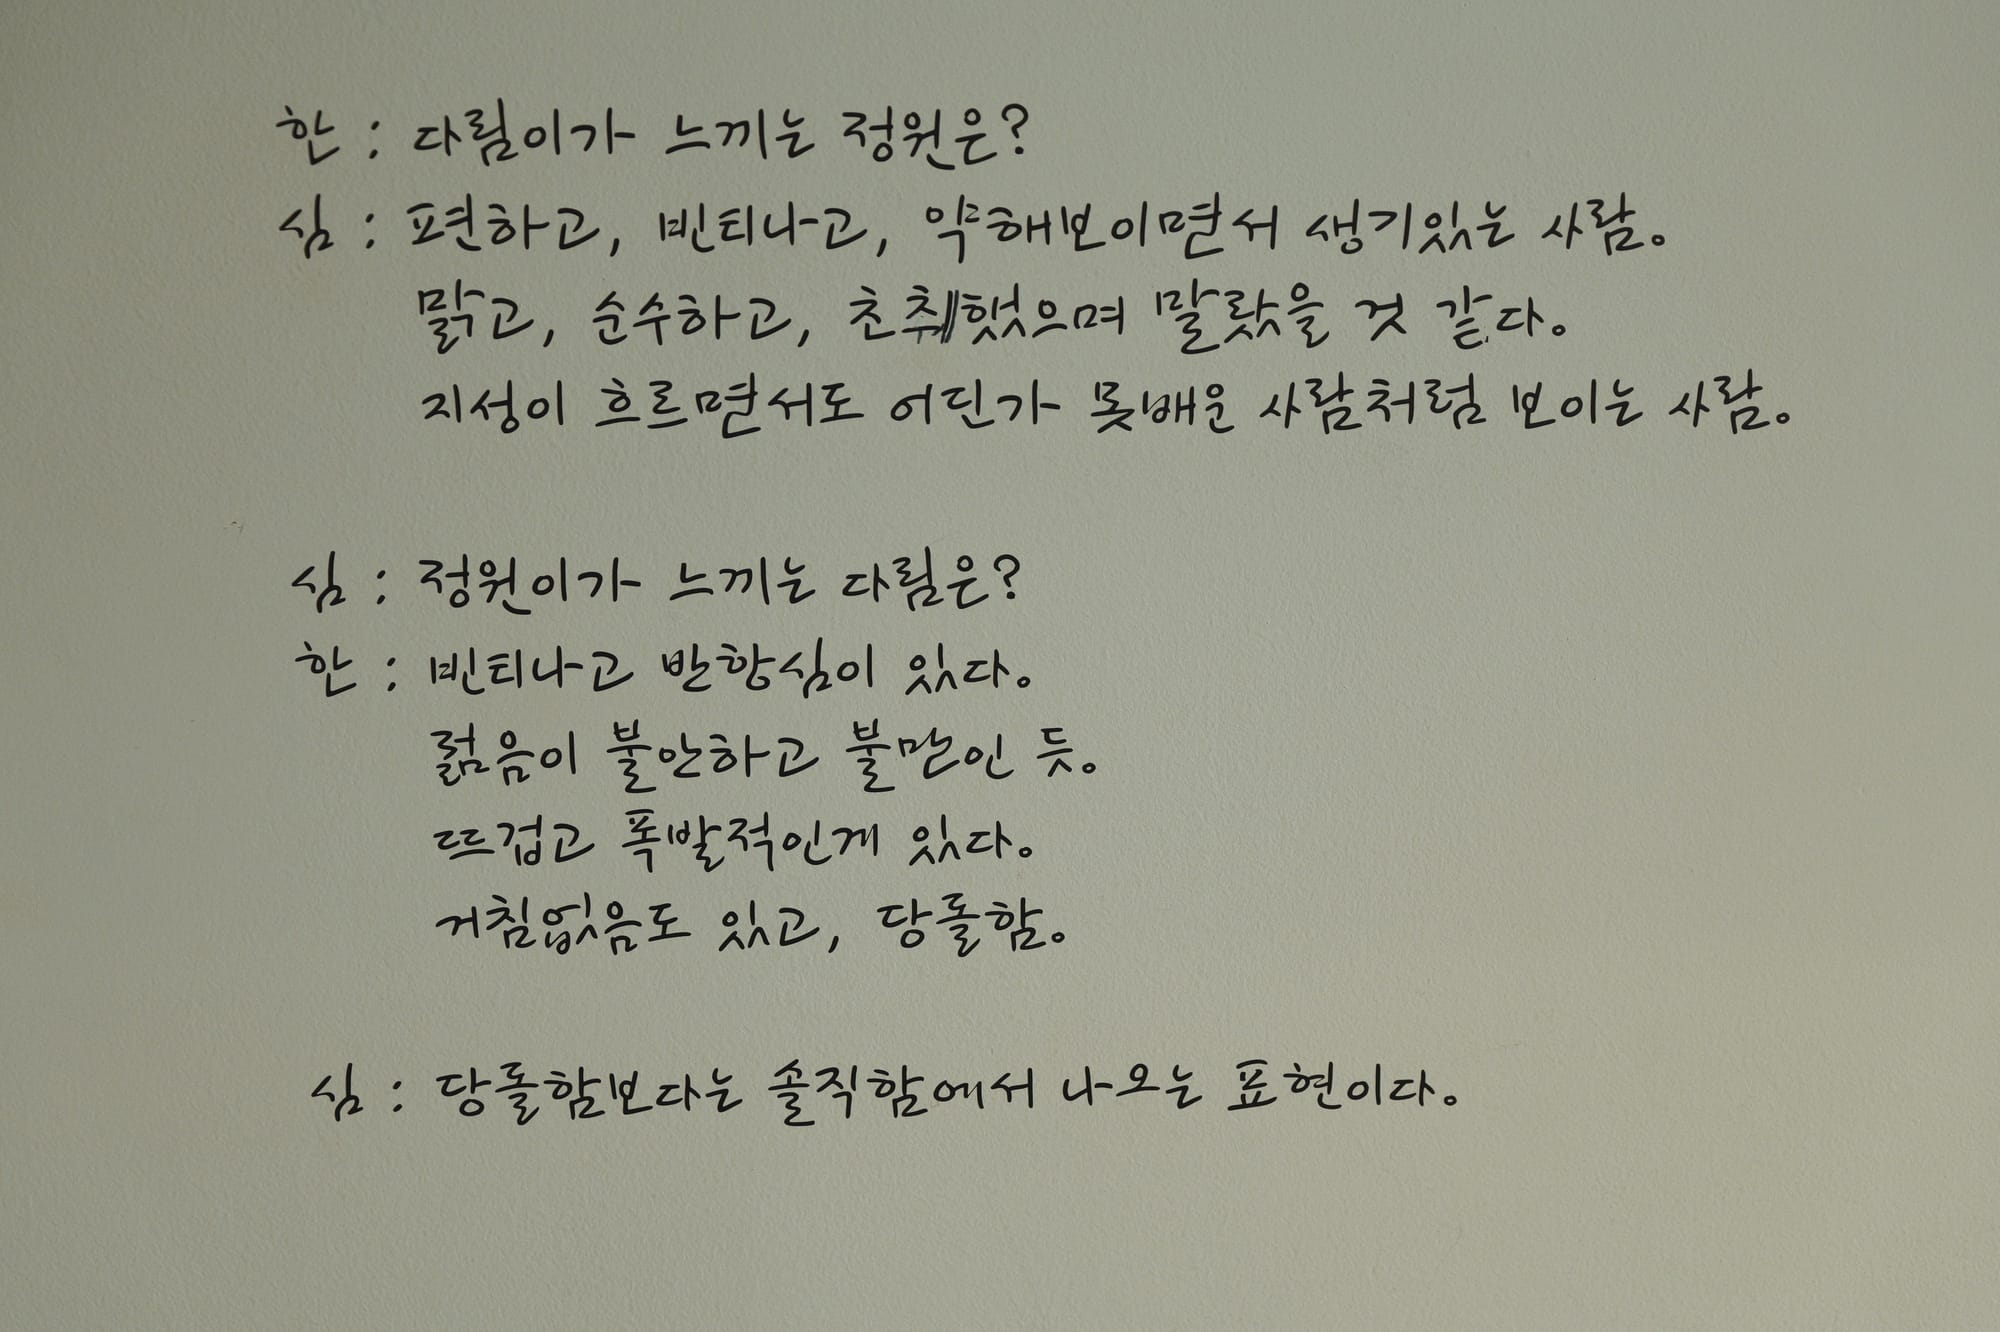 한 : 다림이가 느끼는 정원은?
심 : 편하고, 빈티나고, 약해보이면서 생기있는 사람.
맑고, 순수하고, 초췌했으며 말랐을 것 같다.
지성이 흐르면서도 어딘가 못배운 사람처럼 보이는 사람.
심 : 정원이가 느끼는 다림은?
한 : 빈티나고 반항심이 있다.
젊음이 불안하고 불만인 듯.
뜨겁고 폭발적인게 있다.
거침없음도 있고, 당돌함.
심 : 당돌함보다는 솔직함에서 나오는 표현이다.